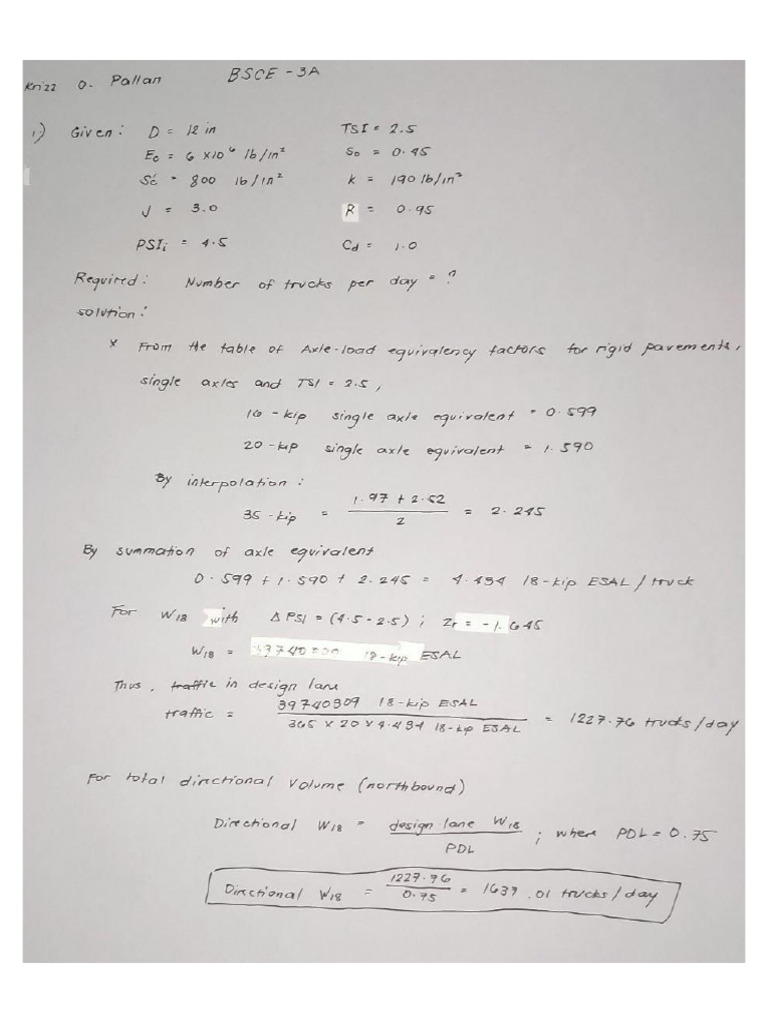 Krizz O. Pallan BSCE - 3A
1.) Given: D = 12 in TSI = 2.5
Ec = 6 x10⁶ lb/in² So = 0.45
Sc' = 800 lb/in² k = 190 lb/in³
J = 3.0 R = 0.95
PSIi = 4.5 Cd = 1.0
Required: Number of trucks per day = ?
solution:
* From the table of Axle-load equivalency factors for rigid pavements,
single axles and TSI = 2.5,
16 - kip single axle equivalent = 0.599
20 - kip single axle equivalent = 1.590
By interpolation:
35 - kip = 1.97 + 2.52 / 2 = 2.245
By summation of axle equivalent
0.599 + 1.590 + 2.245 = 4.434 18-kip ESAL / truck
For W18 with ΔPSI = (4.5 - 2.5) ; Zr = -1.645
W18 = 18-kip ESAL
Thus, traffic in design lane
traffic = 39740309 18-kip ESAL / 365 x 20 x 4.434 18-kip ESAL = 1227.76 trucks/day
For total directional Volume (northbound)
Directional W18 = design-lane W18 / PDL ; where PDL = 0.75
Directional W18 = 1227.76 / 0.75 = 1637.01 trucks/day